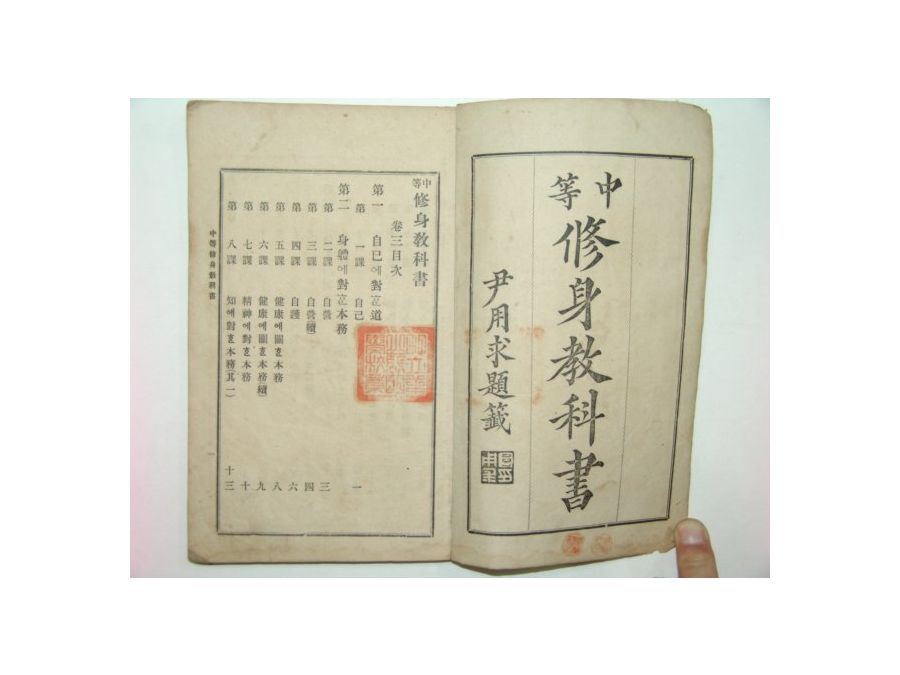 中等
修身教科書
尹用求題籤
中等修身教科書
卷三目次
第一 自己에對ᄒᆞᆫ道
第一課 自己 一
第二 身體에對ᄒᆞᆫ本務
第二課 自營 三
第三課 自營(續) 四
第四課 自護 六
第五課 健康에關ᄒᆞᆫ本務 八
第六課 健康에關ᄒᆞᆫ本務(續) 九
第七課 精神에對ᄒᆞᆫ本務 十
第八課 知에對ᄒᆞᆫ本務(其一) 十三
中等修身敎科書